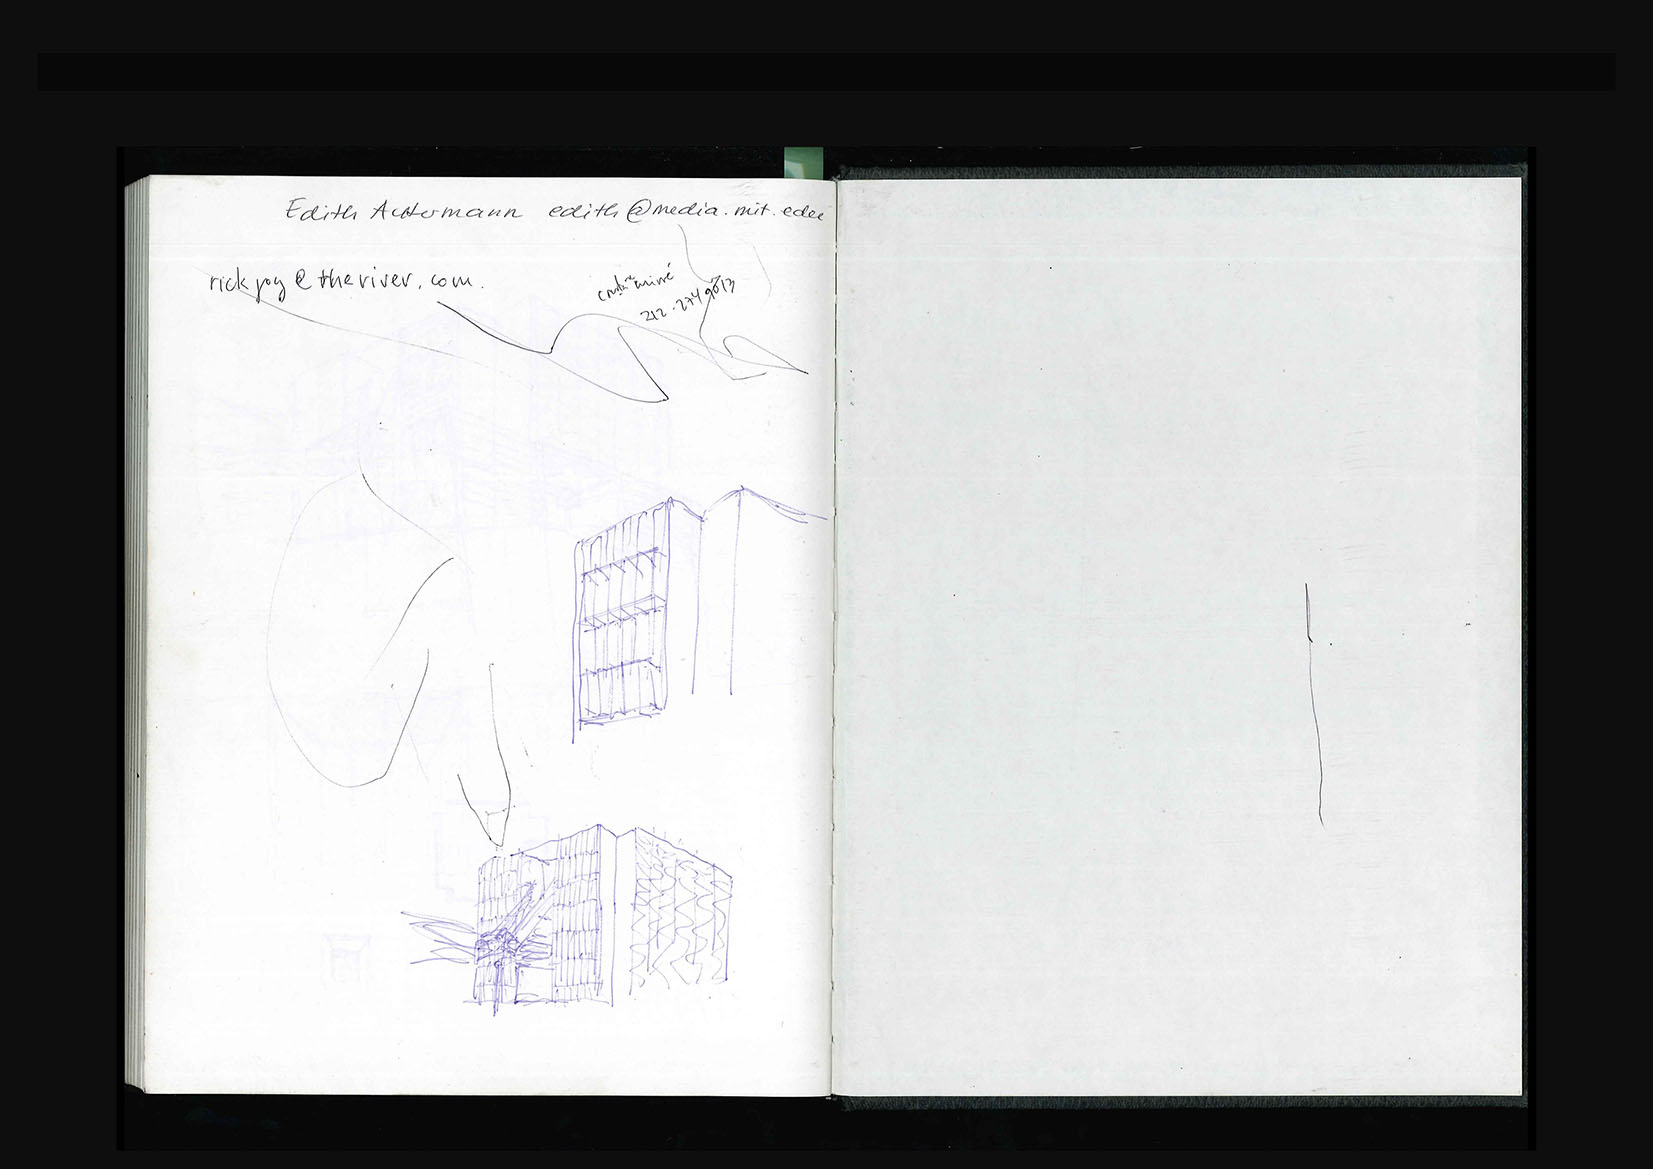 Edith Ackermann edith@media.mit.edu
rickjoy@theriver.com.
212.274 9013